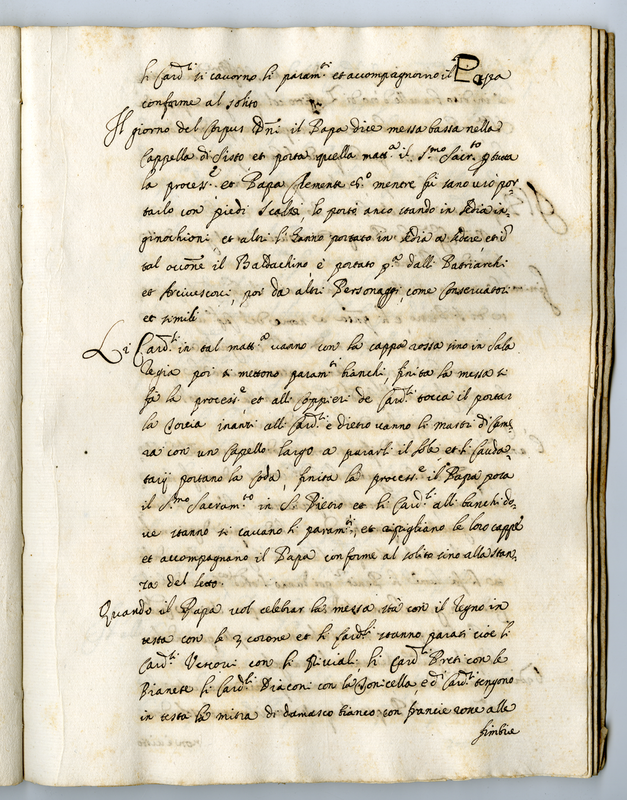 li Card.li si cavorno li param.ti et accompagnorno il Papa
conforme al solito
Il giorno del Corpus Dñi il Papa dice messa bassa nella
Cappella di Sisto et porta quella matt.a il S.mo Sacr.to p tutta
la process.e et Papa Clemente 8.o mentre fu sano usò por
tarlo con piedi scalzi, lo portò anco stando in sedia in
ginochioni et altri l'hanno portato in sedia a sedere, et
tal occõne il Baldachino è portato p.a dalli Patriarchi
et Arcivescovi, poi da altri Personaggi, come Conservatori
et simili
Li Card.li in tal matt.a vanno con la cappa rossa sino in sala
Regia poi si mettono param.ti bianchi, finita la messa si
fa la process.e et alli scoppieri de Card.li tocca il portar
la torcia inanti alli Card.li e dietro vanno li mastri di Came
ra con un Capello largo a pararli il sole et li Cauda-
tarij portano la coda, finita la process.e il Papa posa
il S.mo Sacram.to in S. Pietro et li Card.li alli banchi do-
ve stanno si cavano li param.ti, et ripigliano le loro cappe
et accompagnano il Papa conforme al solito sino alla stan-
za del letto.
Quando il Papa vol celebrar la messa stà con il Regno in
testa con le 3 corone et li Card.li stanno parati cioè li
Card.li Vescovi con li Piviali, li Card.li Preti con le
Pianete li Card.li Diaconi con la Tonicella, e di Card.li tengono
in testa la mitra di damasco bianco con francie zone alle
fimbrie